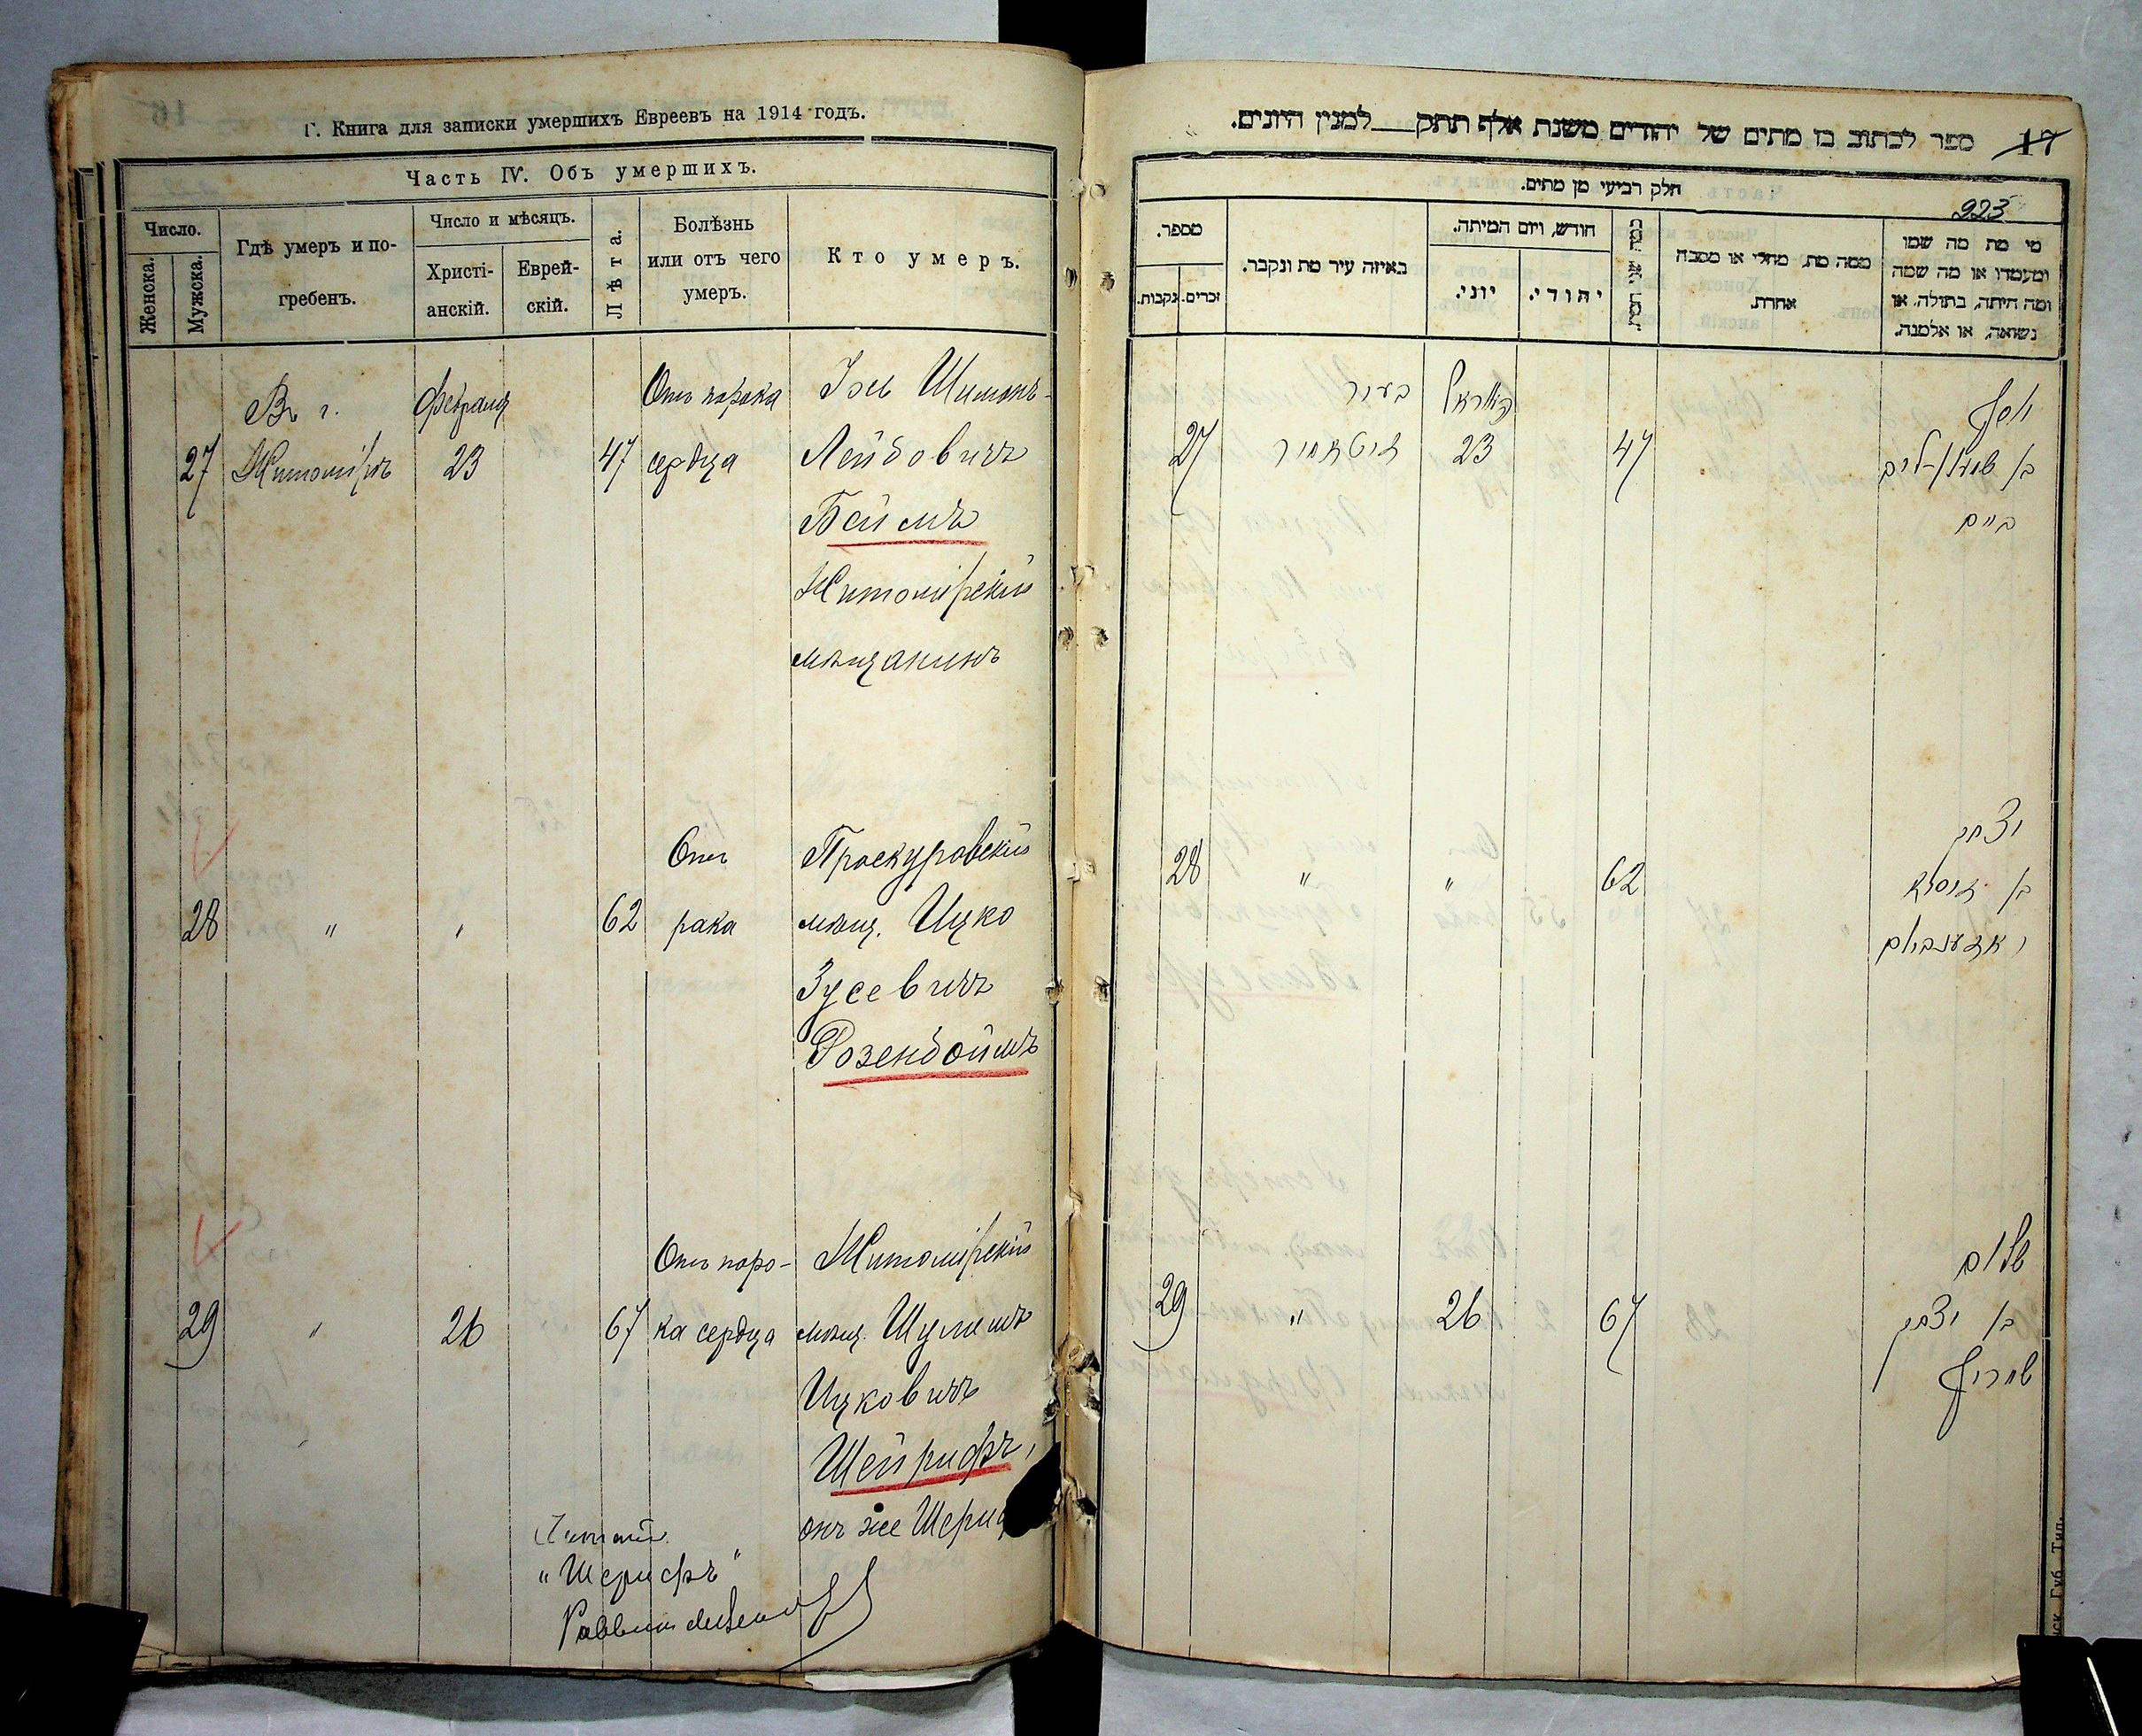 Г. Книга для записки умершихъ Евреевъ на 1914 годъ.
Часть IV. Объ умершихъ.
Число.
Женска.
Мужска.
Гдѣ умеръ и по-
гребенъ.
Число и мѣсяцъ.
Христі-
анскій.
Еврей-
скій.
Лѣта.
Болѣзнь
или отъ чего
умеръ.
Кто умеръ.
27
Въ г.
Житомірѣ
Февраля
23
47
Отъ порока
сердца
Іось Шимонъ-
Лейбовичъ
Беймъ
Житомірскій
мѣщанинъ
28
"
"
62
Отъ
рака
Проскуровскій
мѣщ. Ицко
Зусевичъ
Розенбоймъ
29
"
26
67
Отъ поро-
ка сердца
Житомірскій
мѣщ. Шулимъ
Ицковичъ
Шейрифъ,
онъ же
"Шерифъ"
17
ספר לכתוב בו מתים של יהודים משנת אלף תתק למנין היונים.
223
חלק רביעי מן מתים.
מספר.
נקבות.
זכרים.
באיזה עיר מת ונקבר.
חודש, ויום המיתה.
יוני.
יהודי.
ממה מת, מחלי או מסבה
אחרת.
מי מת מה שמו
ומעמדו או מה שמה
ומה היתה, בתולה, או
נשואה, או אלמנה.
27
בעיר
זיטאמיר
23
47
יוסף
בן שמעון-לייב
ביים
28
"
"
62
יצחק
בן זוסיא
ראזענבוים
29
"
26
67
שלום
בן יצחק
שיריף